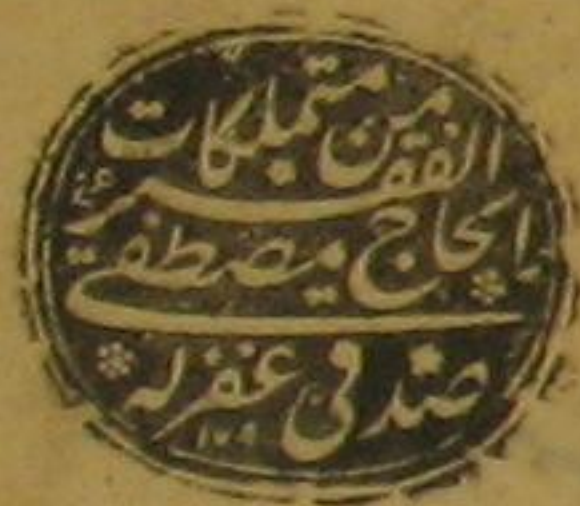 من متملكات
الفقير
الحاج مصطفى
صدقي غفر له